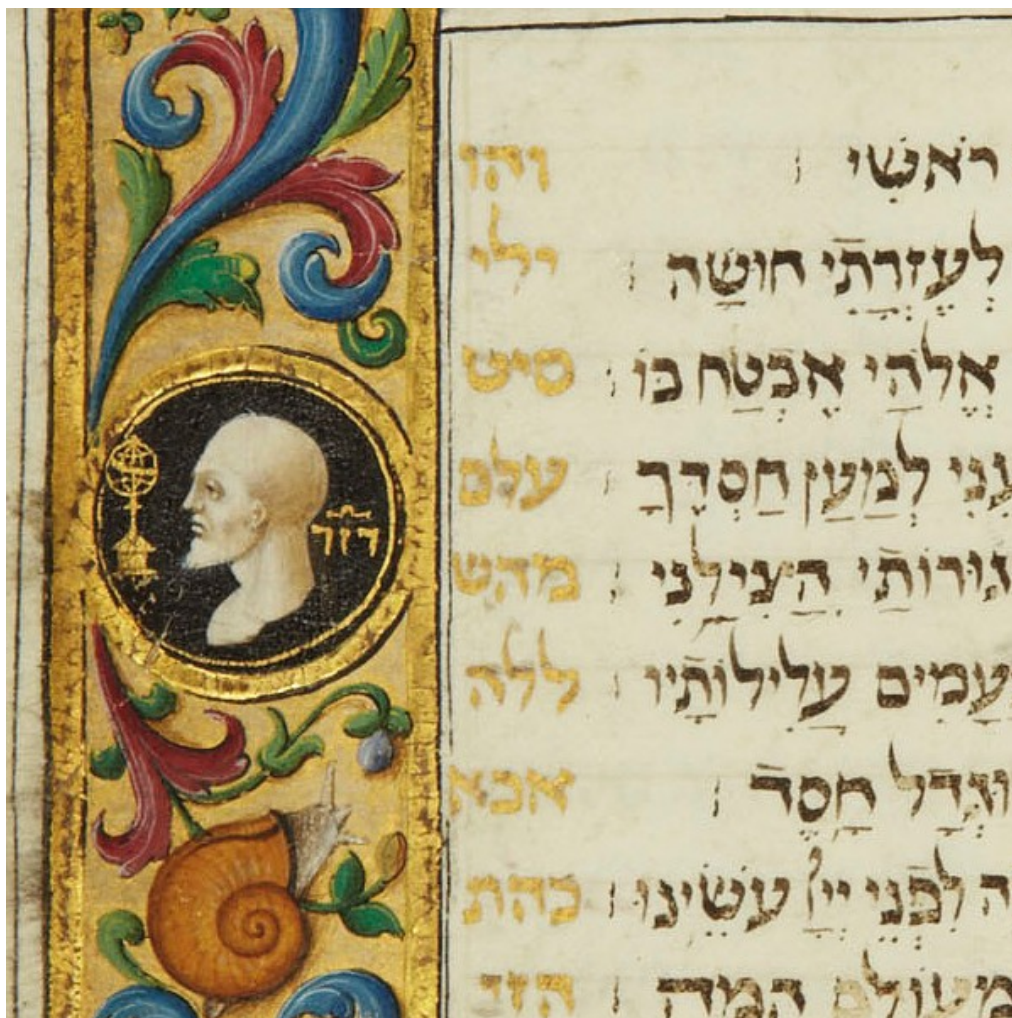 רֹאשִׁי ׀ והו
לְעֶזְרָתִי חוּשָׁה ׀ ילי
אֱלֹהַי אֶבְטַח בּוֹ ׀ סיט
לְמַעַן חַסְדֶּךָ ׀ עלם
גוּרוֹתַי הִצִּילָנִי ׀ מהש
עַמִּים עֲלִילוֹתָיו ׀ ללה
וּגְדָל חָסֶד ׀ אכא
ה לִפְנֵי יְיָ עֹשֵׂינוּ ׀ כהת
מֵעוֹלָם הֵמָּה הזי